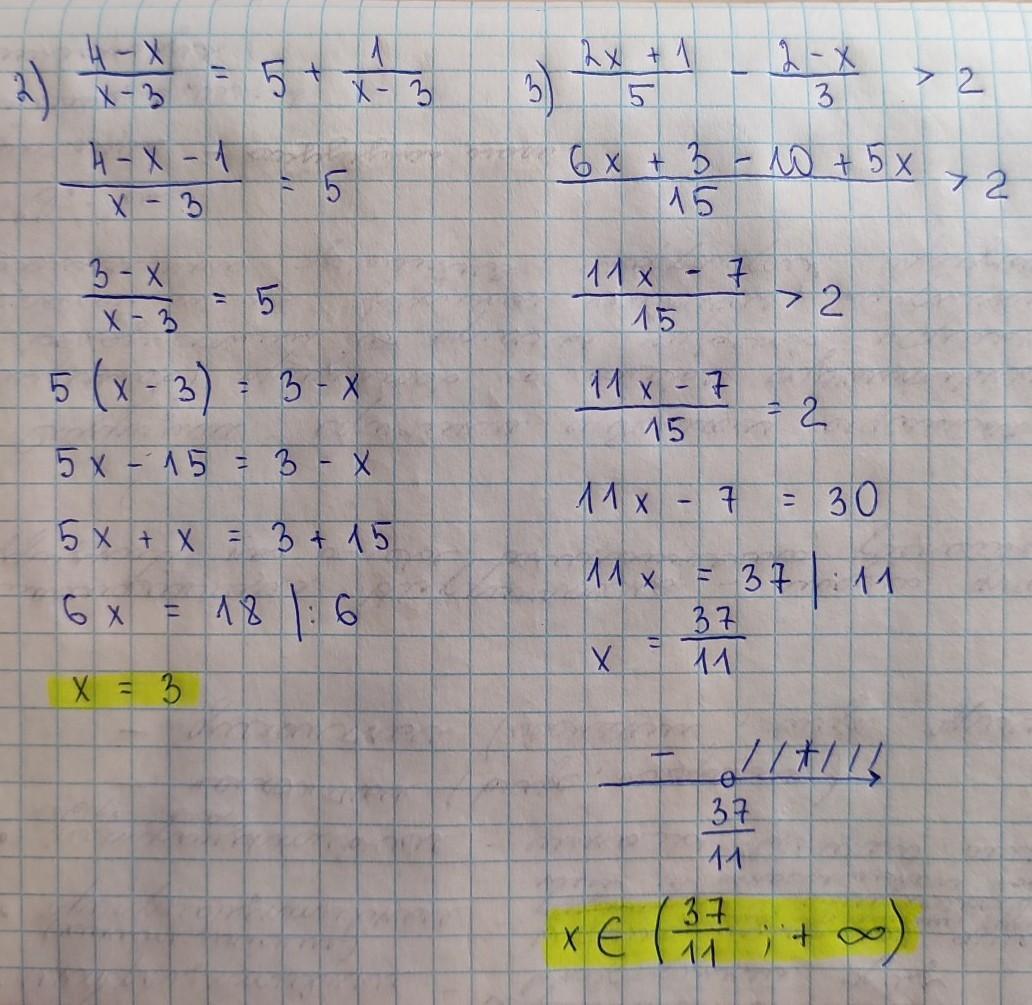 2) (4 - x)/(x - 3) = 5 + 1/(x - 3)
(4 - x - 1)/(x - 3) = 5
(3 - x)/(x - 3) = 5
5 (x - 3) = 3 - x
5x - 15 = 3 - x
5x + x = 3 + 15
6x = 18 | : 6
x = 3
3) (2x + 1)/5 - (2 - x)/3 > 2
(6x + 3 - 10 + 5x)/15 > 2
(11x - 7)/15 > 2
(11x - 7)/15 = 2
11x - 7 = 30
11x = 37 | : 11
x = 37/11
- +
37/11
x ∈ (37/11 ; + ∞)